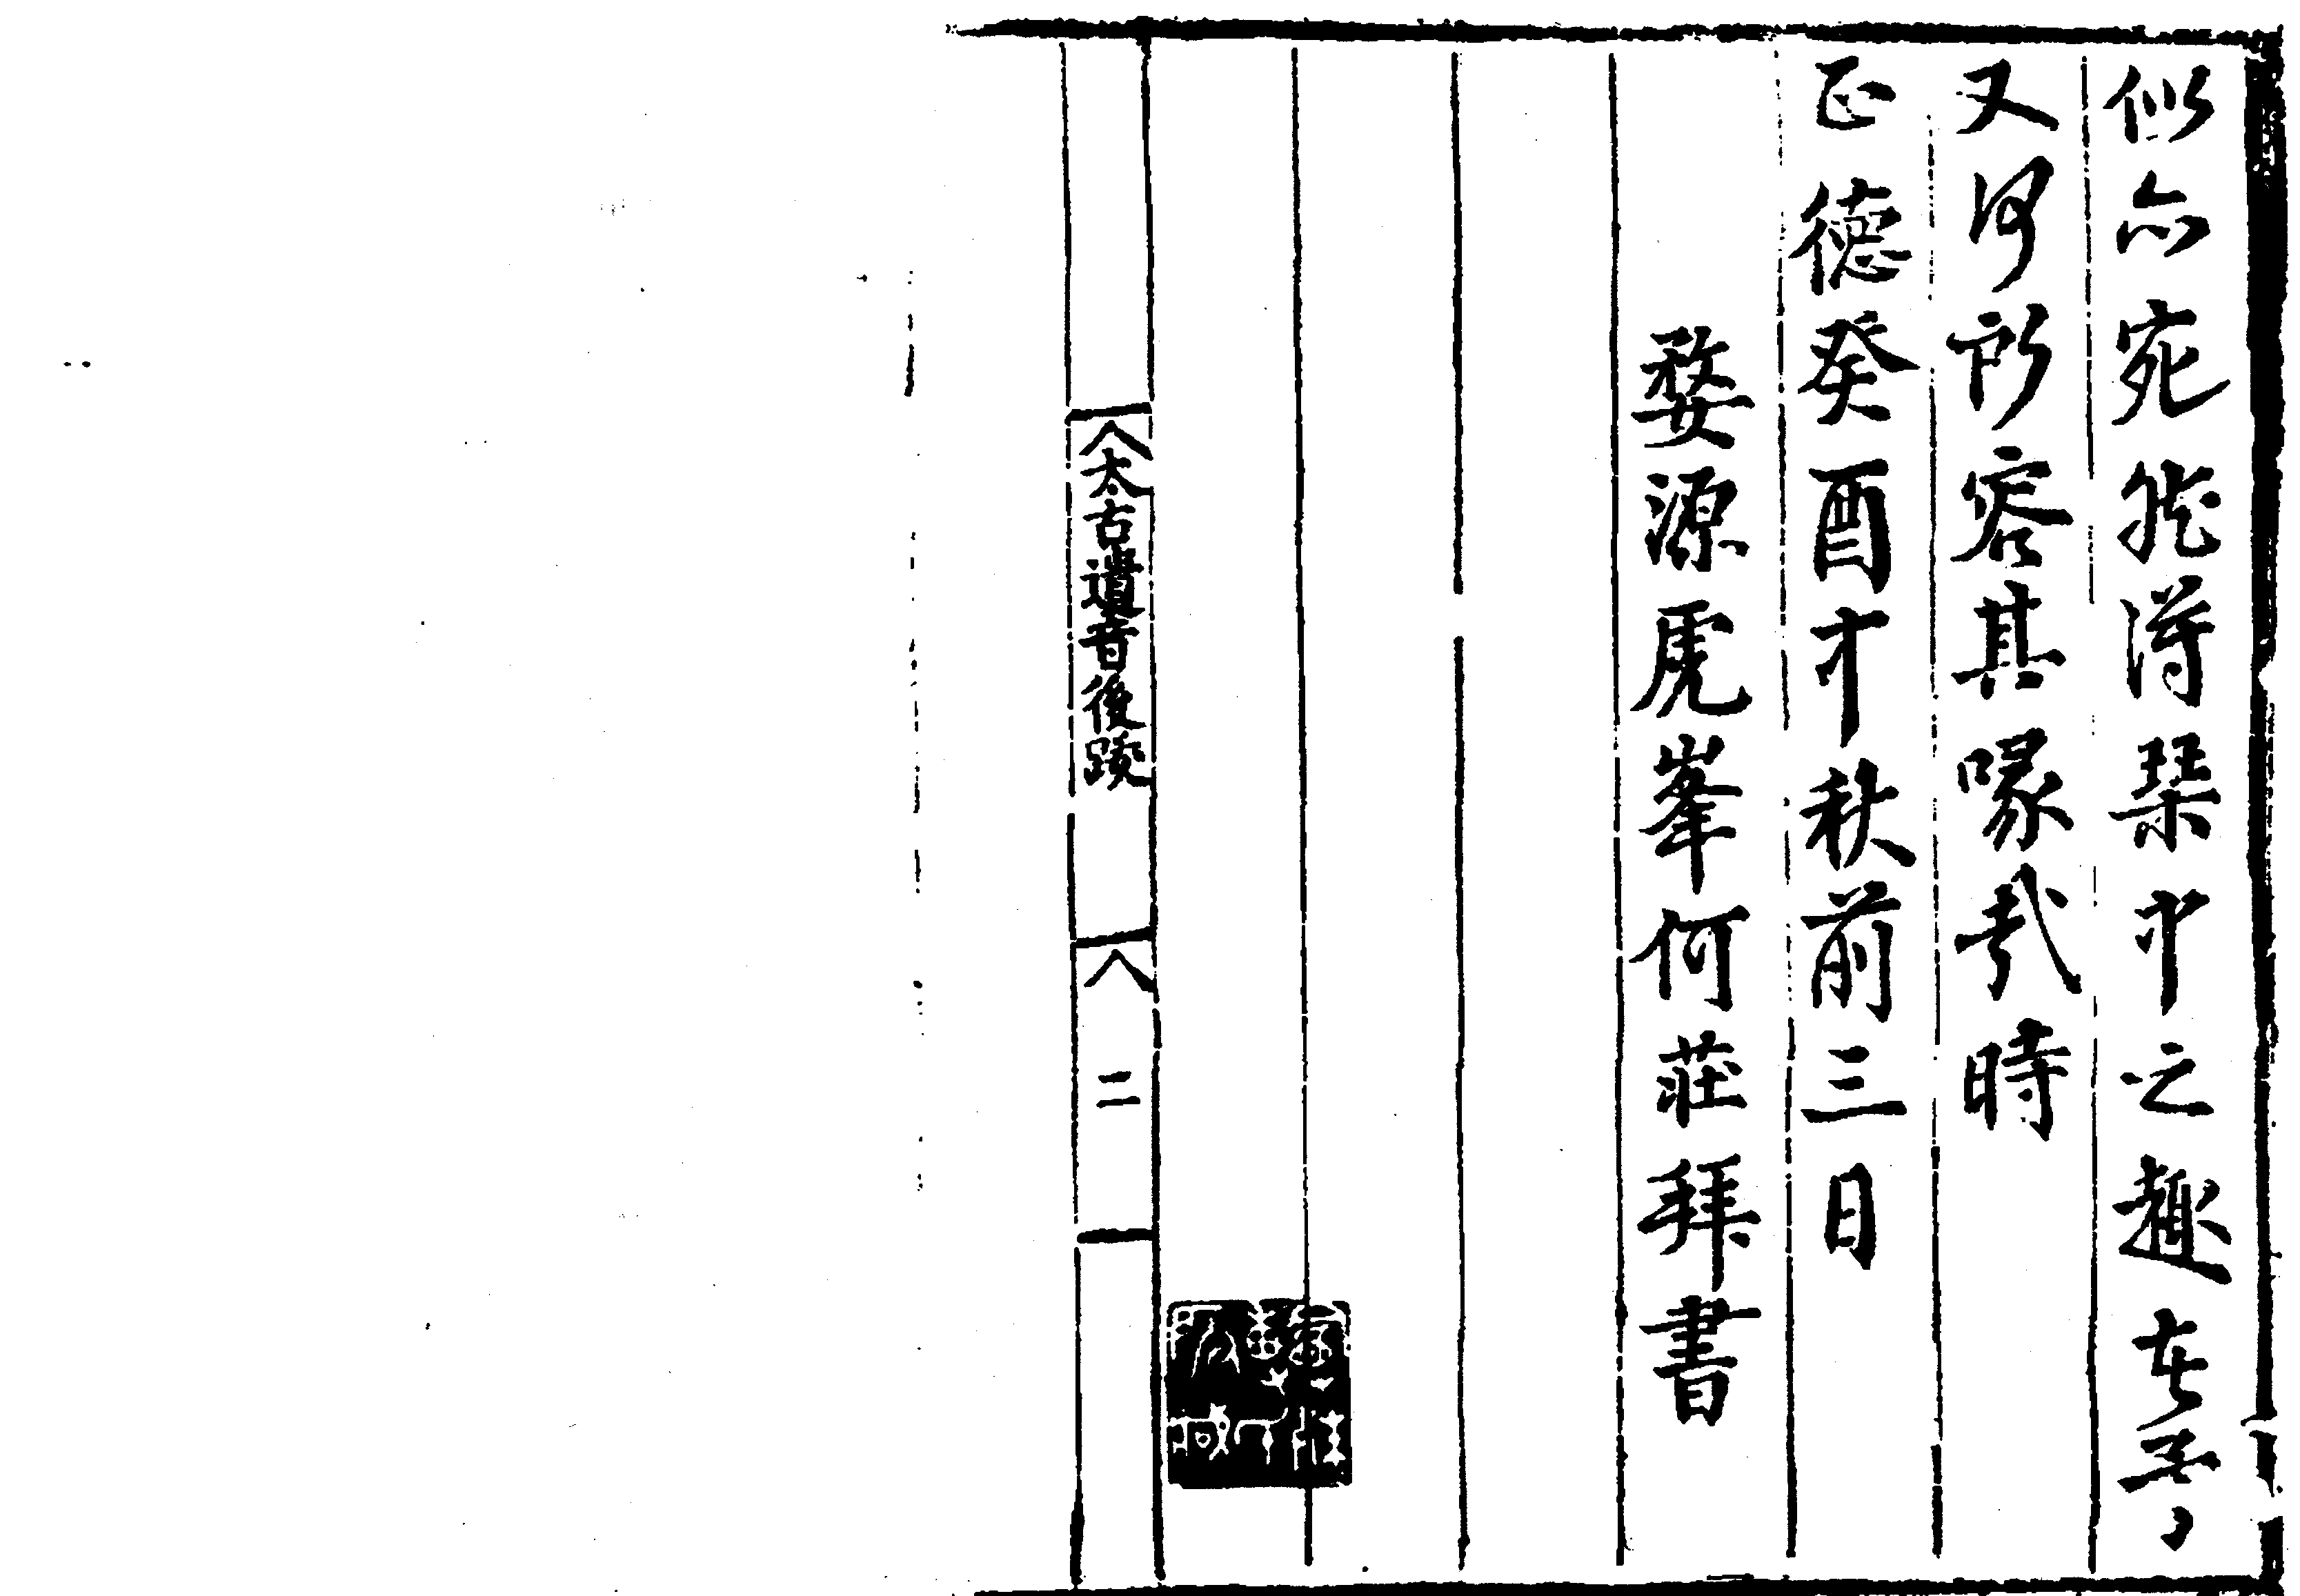 似亦宛然得琴中之趣在吾
又何所容其喙哉時
正德癸酉中秋前三日
婺源虎峯何莊拜書
太古遺音後跋
二